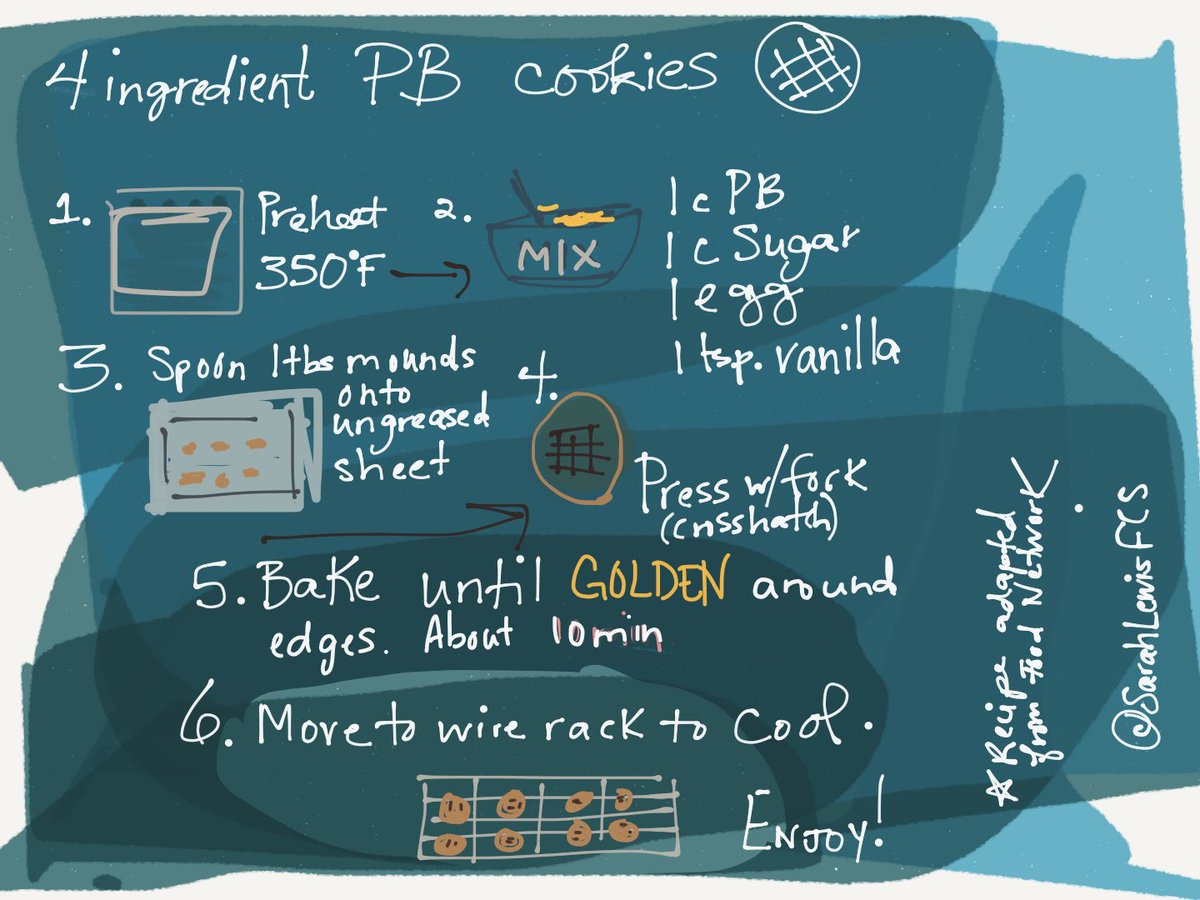 4 ingredient PB cookies
1. Preheat
350°F
2. MIX
1 c PB
1 c Sugar
1 egg
1 tsp. vanilla
3. Spoon 1 tbs mounds
onto
ungreased
sheet
4.
Press w/fork
(crosshatch)
5. Bake until GOLDEN around
edges. About 10 min
6. Move to wire rack to cool.
Enjoy!
☆ Recipe adapted
from Food Network
@SarahLewisFCS